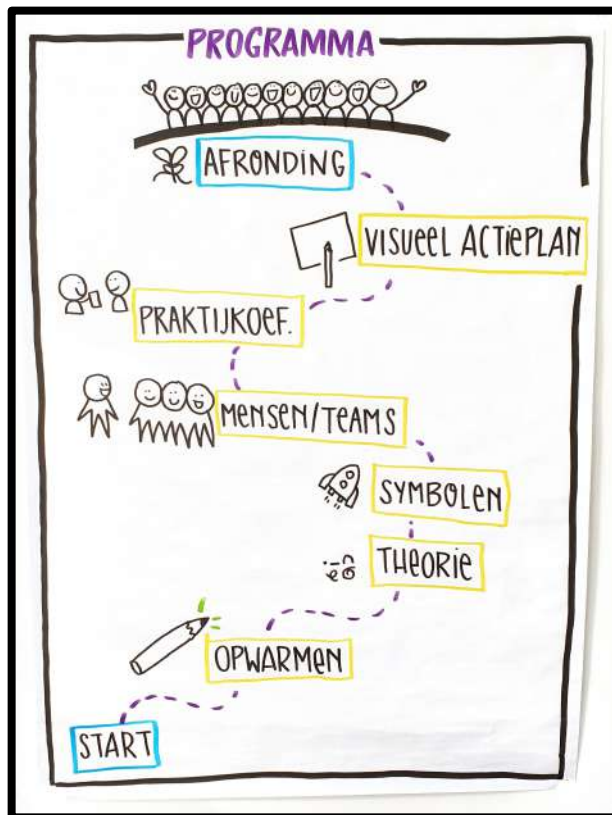 PROGRAMMA
AFRONDING
VISUEEL ACTIEPLAN
PRAKTIJKOEF.
MENSEN/TEAMS
SYMBOLEN
THEORIE
OPWARMEN
START